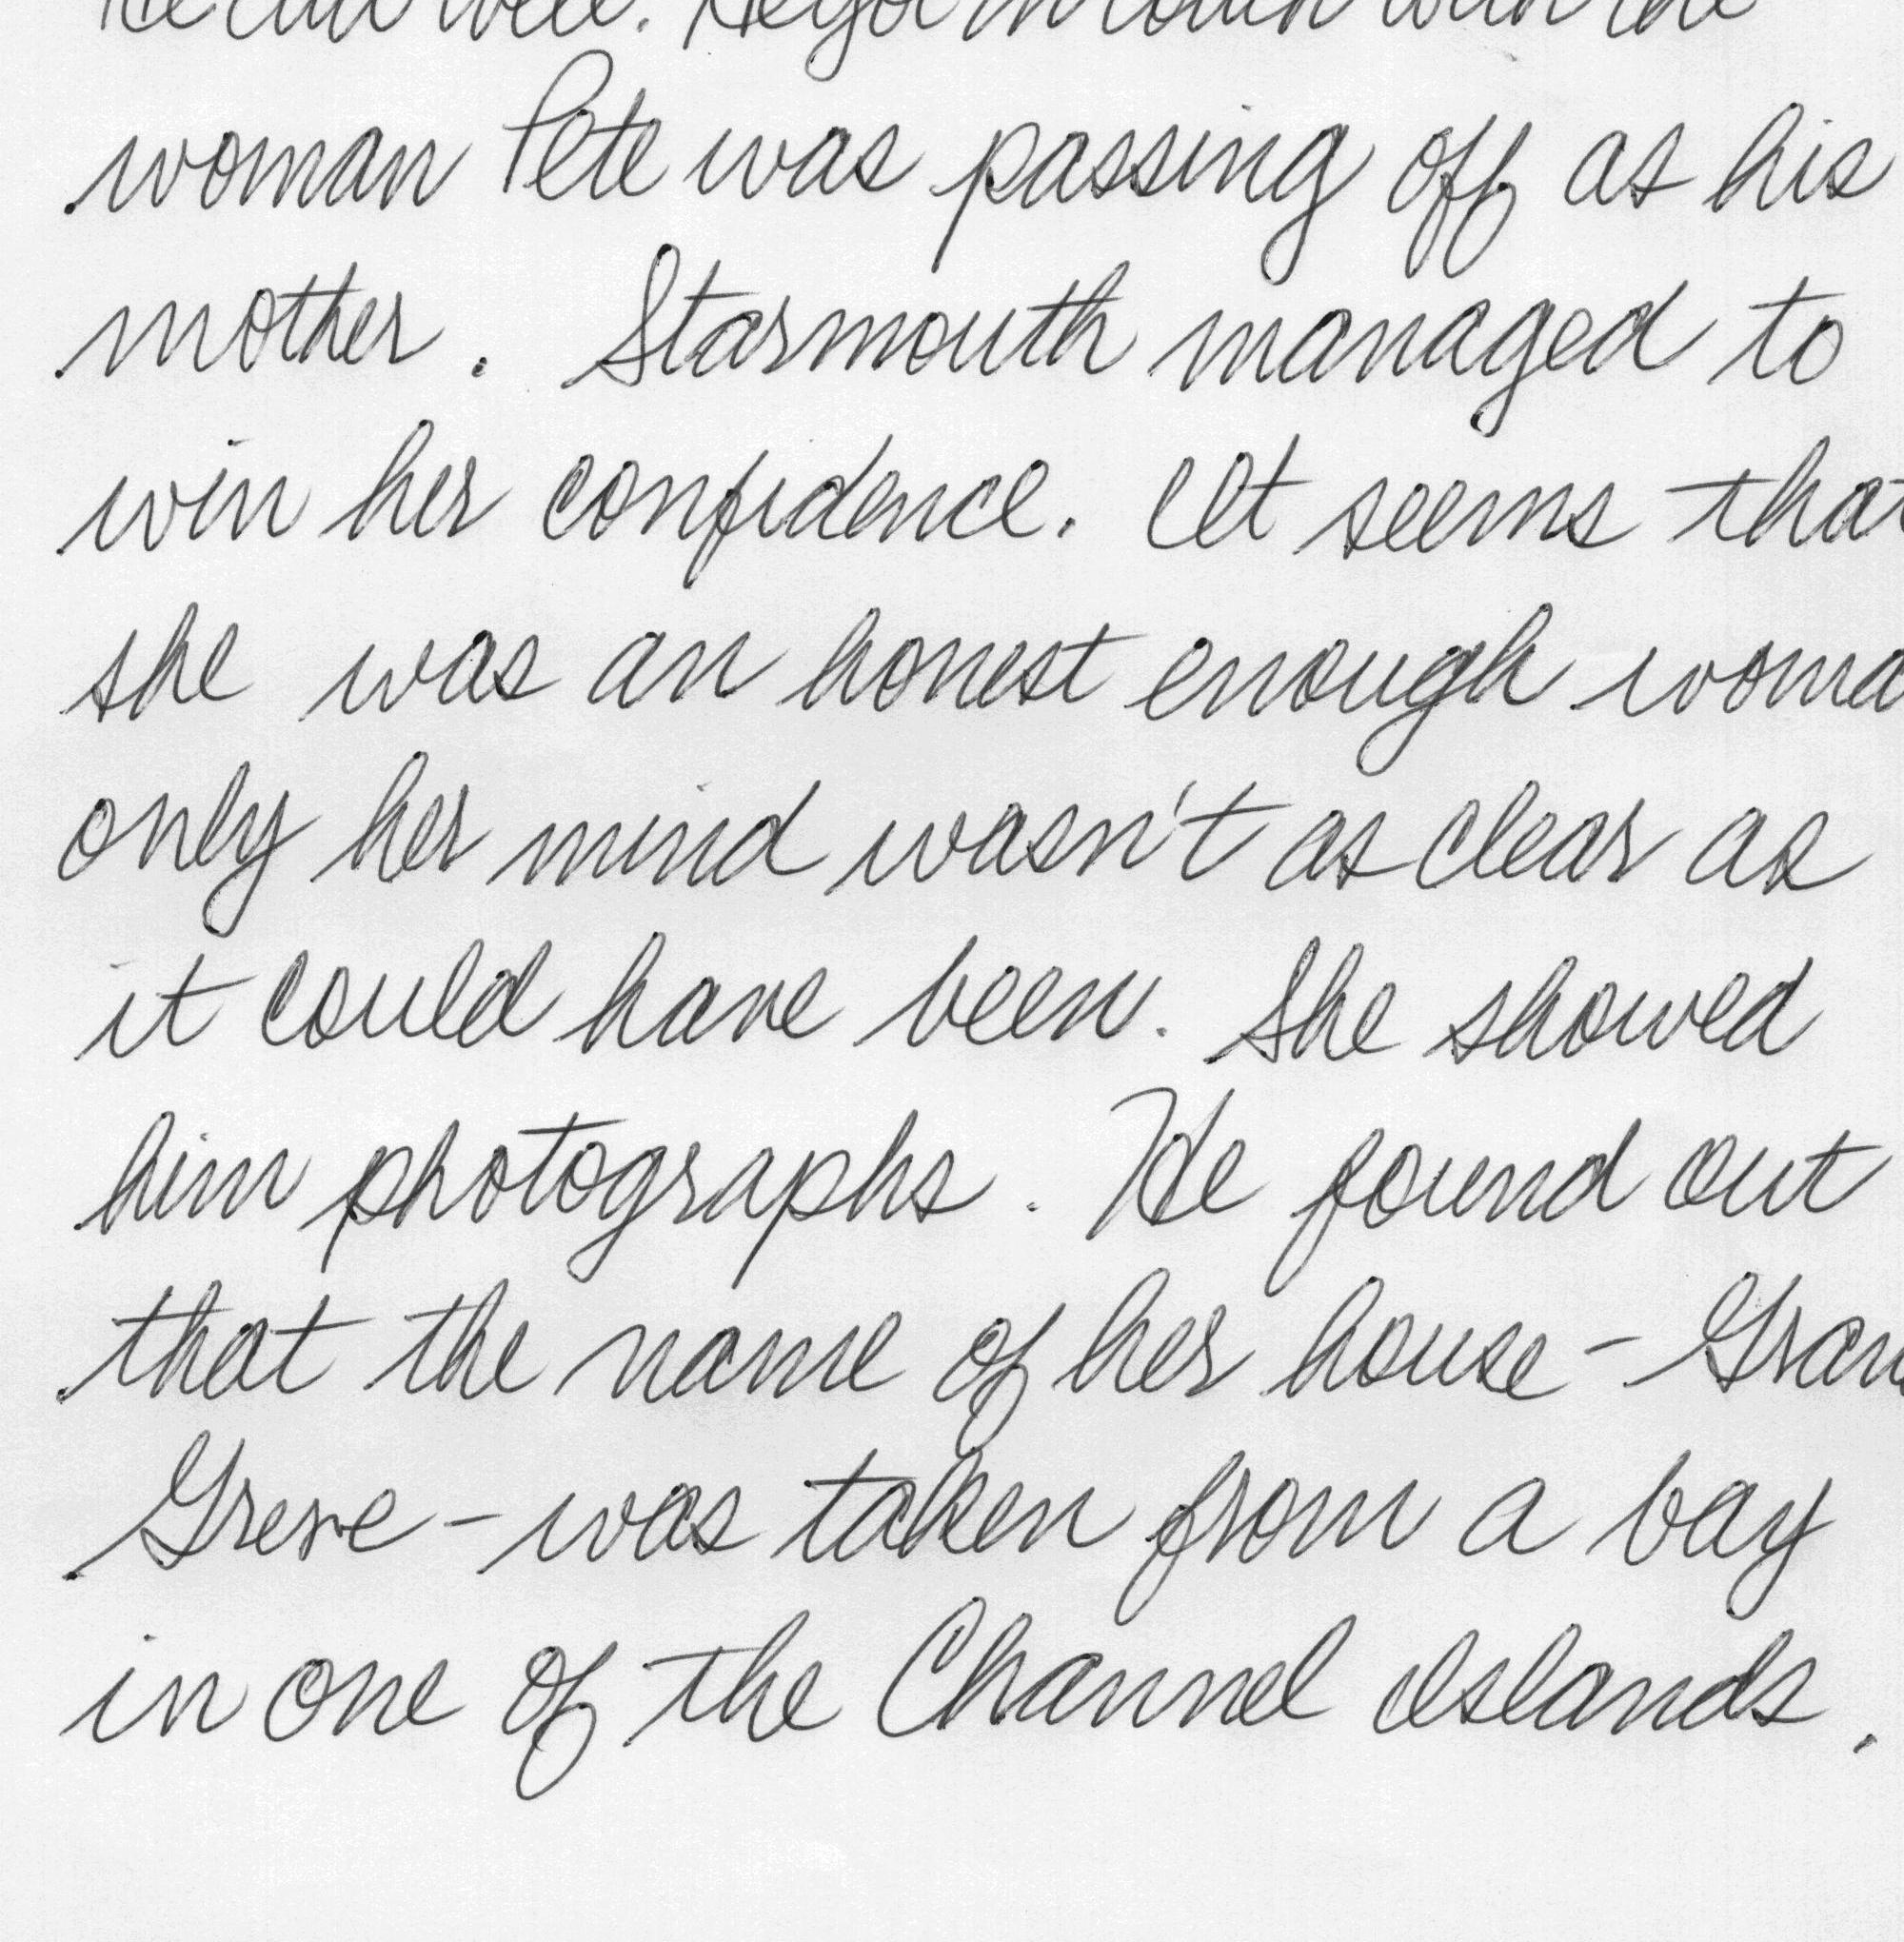 He did well. He got in touch with the
woman Pete was passing off as his
mother. Starmouth managed to
win her confidence. It seems that
she was an honest enough woma
only her mind wasn't as clear as
it could have been. She showed
him photographs. He found out
that the name of her house - Gran
Greve - was taken from a bay
in one of the Channel Islands.